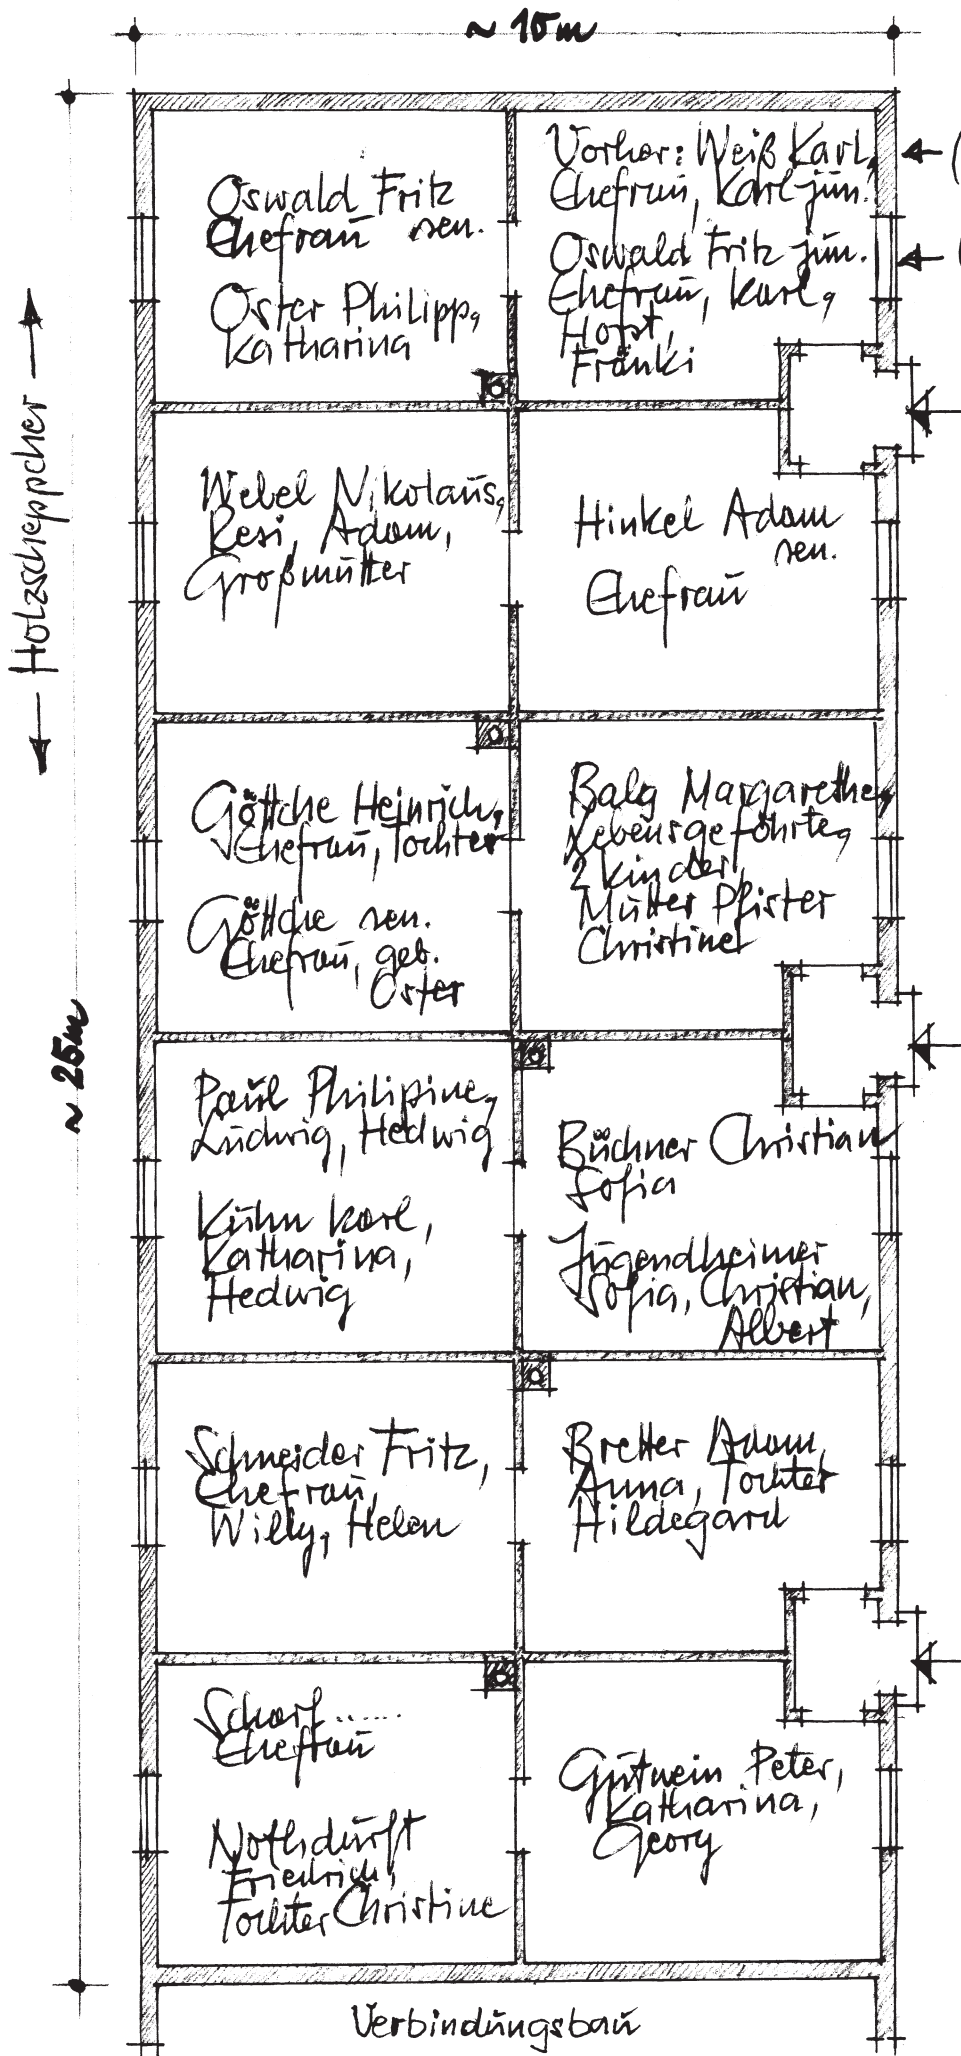 ~ 15m
Oswald Fritz
Ehefrau sen.
Oster Philipp,
Katharina
Vorher: Weiß Karl,
Ehefrau, Karl jun.
Oswald Fritz jun.
Ehefrau, Karl,
Horst,
Fränki
← Holzscheppcher →
Webel Nikolaus,
Resi, Adam,
Großmutter
Hinkel Adam
sen.
Ehefrau
Göttche Heinrich,
Ehefrau, Tochter
Göttche sen.
Ehefrau, geb.
Oster
Balg Margarethe,
Lebensgefährte,
2 Kinder,
Mutter Pfister
Christine
~ 25m
Paul Philipine,
Ludwig, Hedwig
Kuhn Karl,
Katharina,
Hedwig
Büchner Christian
Sofia
Jugendheimer
Sofia, Christian,
Albert
Schneider Fritz,
Ehefrau,
Willy, Helen
Bretter Adam,
Anna, Tochter
Hildegard
Scharf ......
Ehefrau
Nothdurft
Friedrich,
Tochter Christine
Gutwein Peter,
Katharina,
Georg
Verbindungsbau